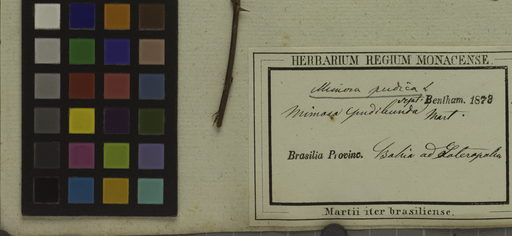 HERBARIUM REGIUM MONACENSE.
Mimosa pudica L
sept. Bentham. 1873
Mimosa pudibunda Mart.
Brasilia Provinc. Bahia ad
Martii iter brasiliense.